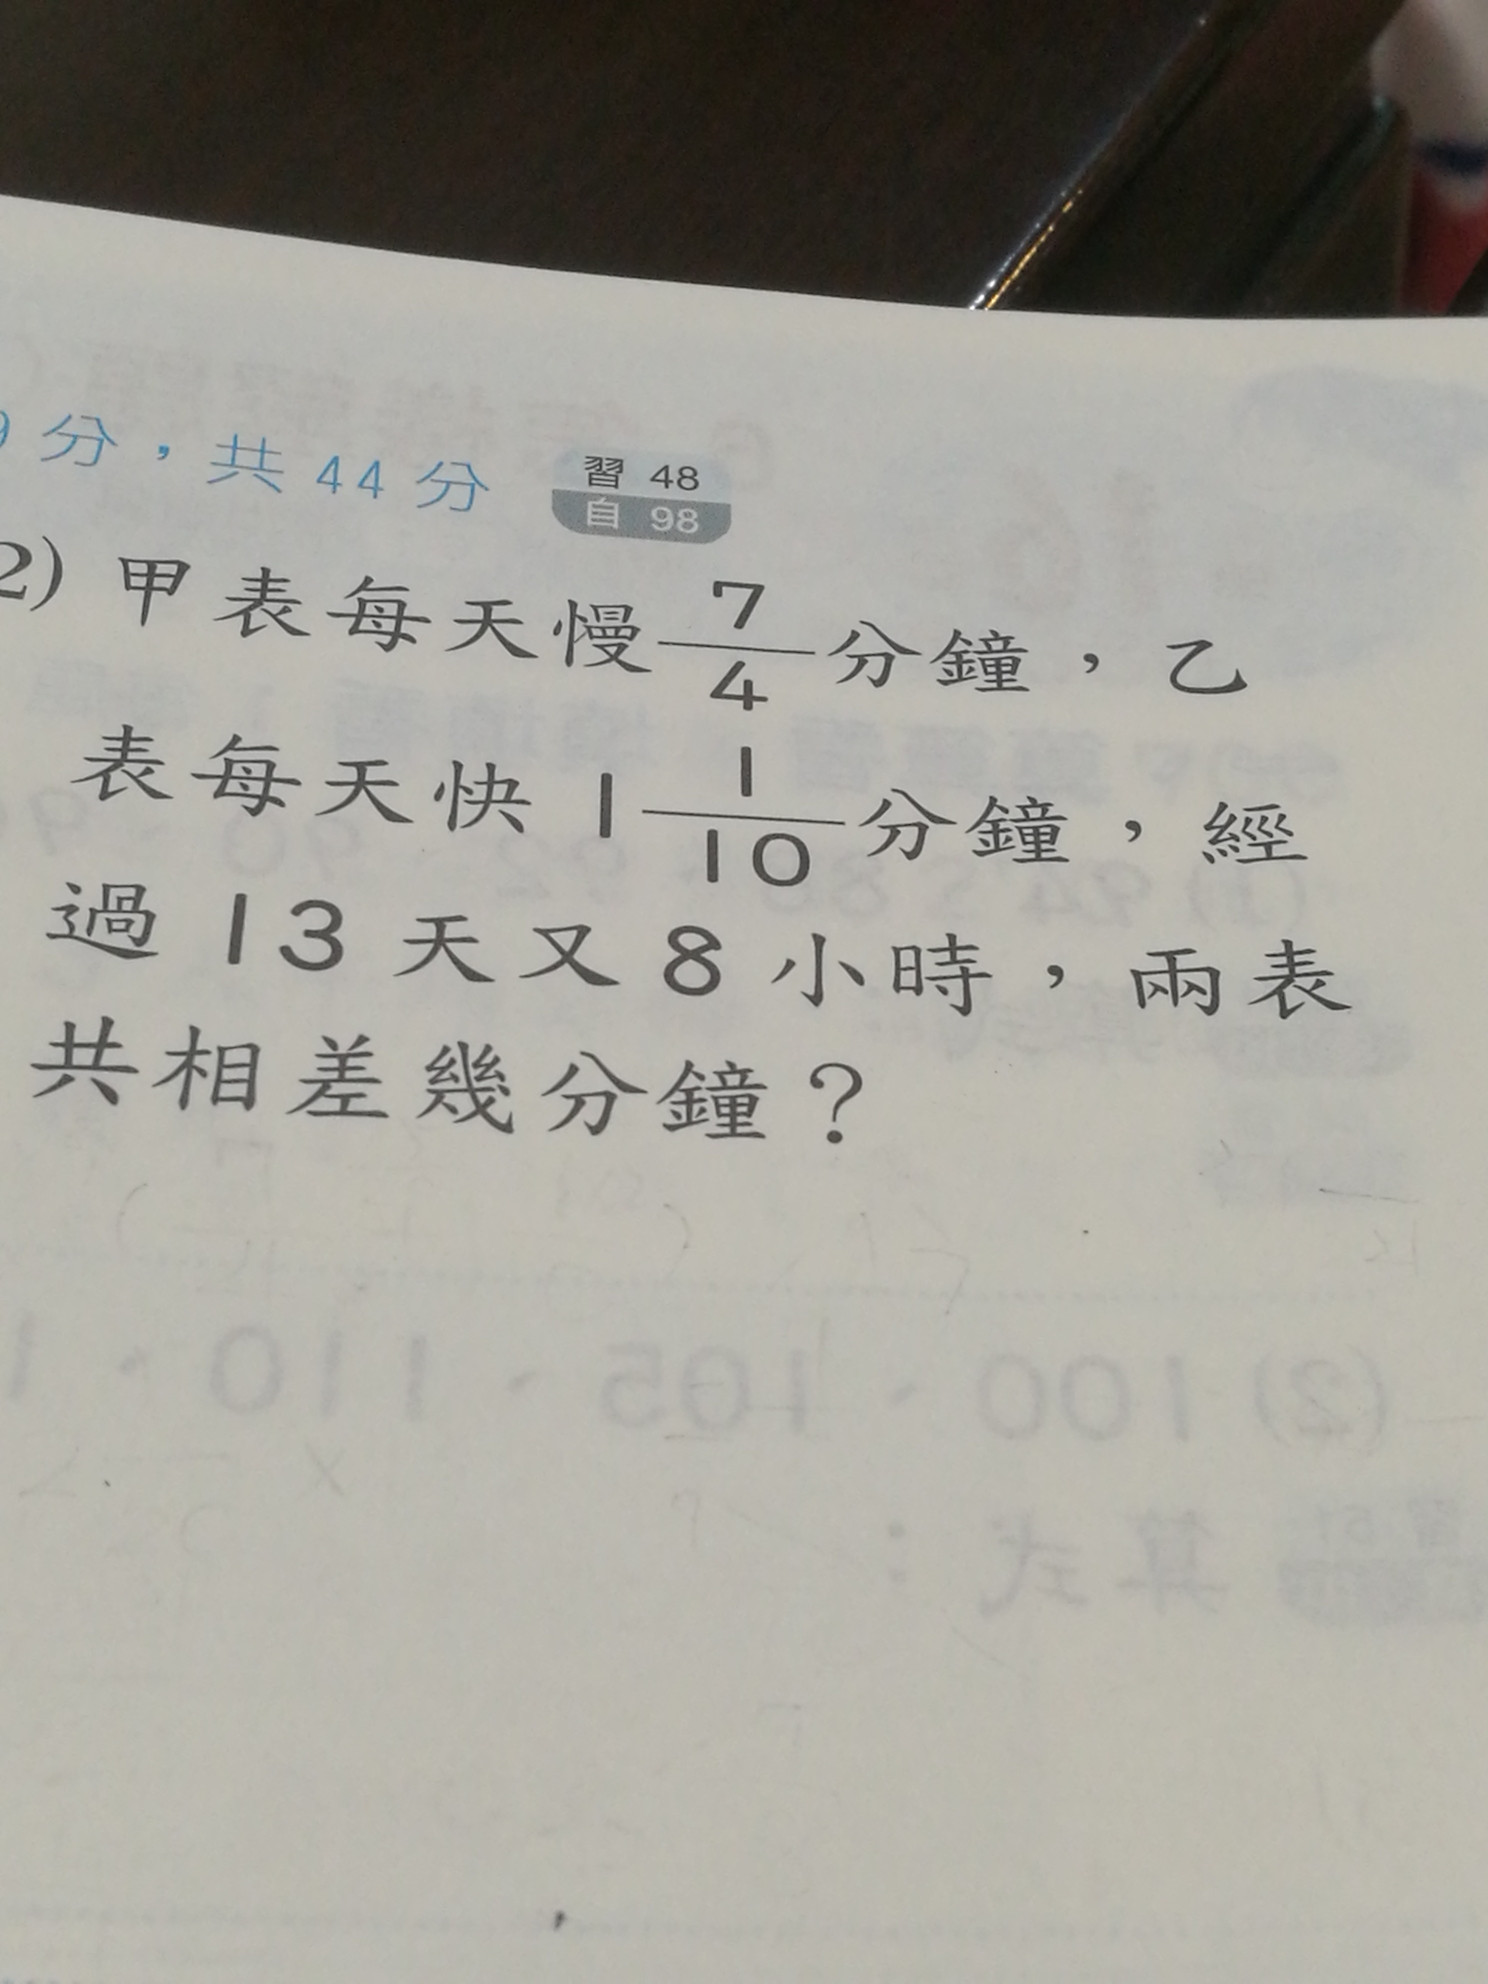 分，共 44 分 習 48
自 98
2) 甲表每天慢 7/4 分鐘，乙
表每天快 1 1/10 分鐘，經
過 13 天又 8 小時，兩表
共相差幾分鐘？
(2) 100、105、110、1
算式：